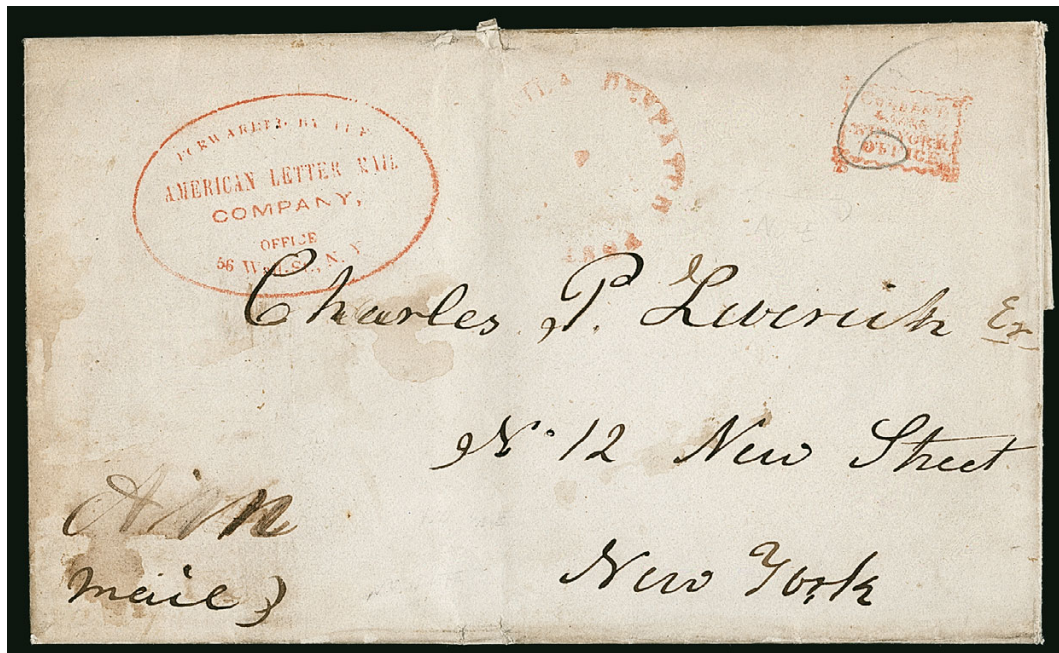 FORWARDED BY THE
AMERICAN LETTER MAIL
COMPANY,
OFFICE
56 Wall St., N. Y.
NEW YORK
OFFICE
Charles P. Leverich Er.
No. 12 New Street
New York
mail